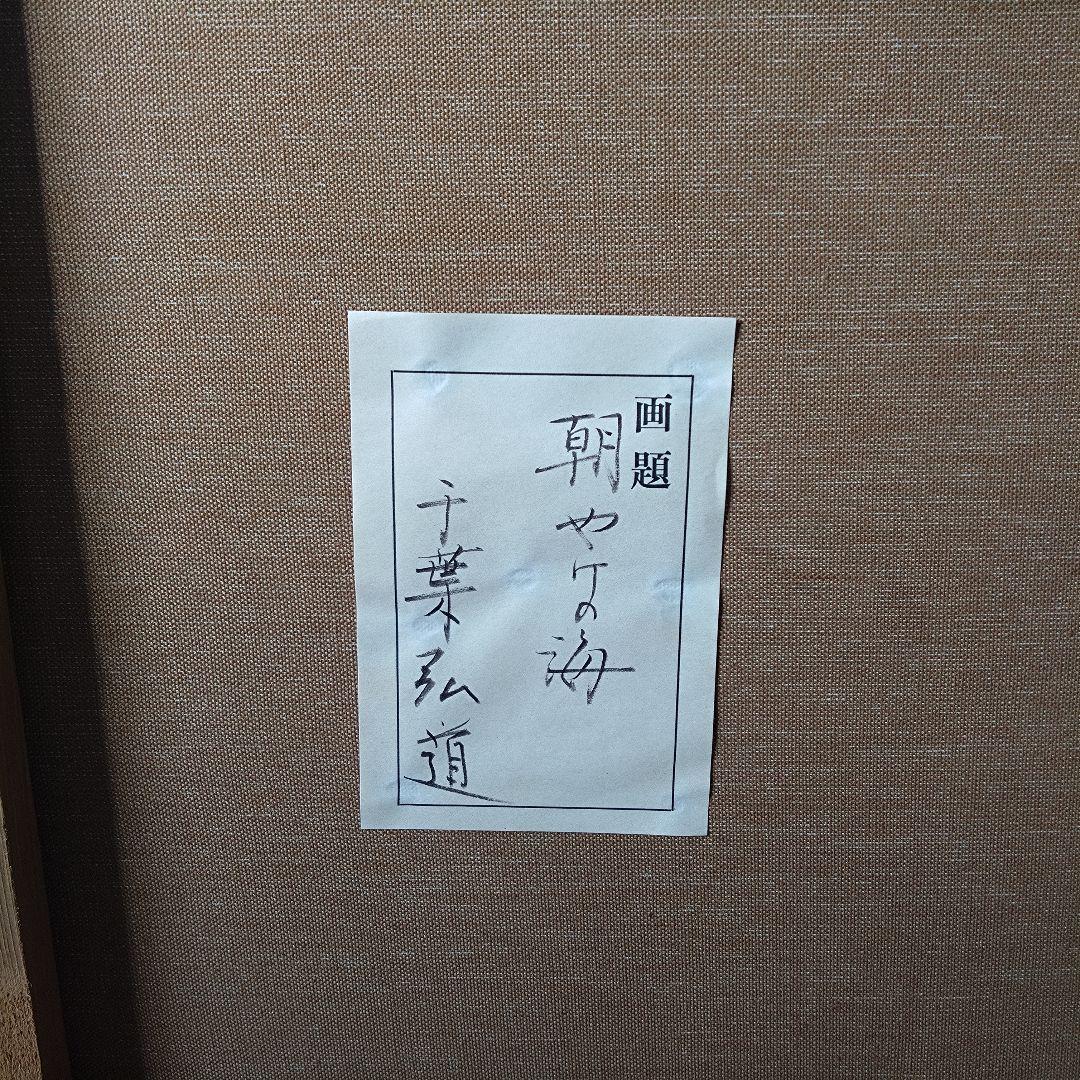 画題
朝やけの海
千葉弘道